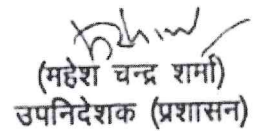 (महेश चन्द्र शर्मा)
उपनिदेशक (प्रशासन)